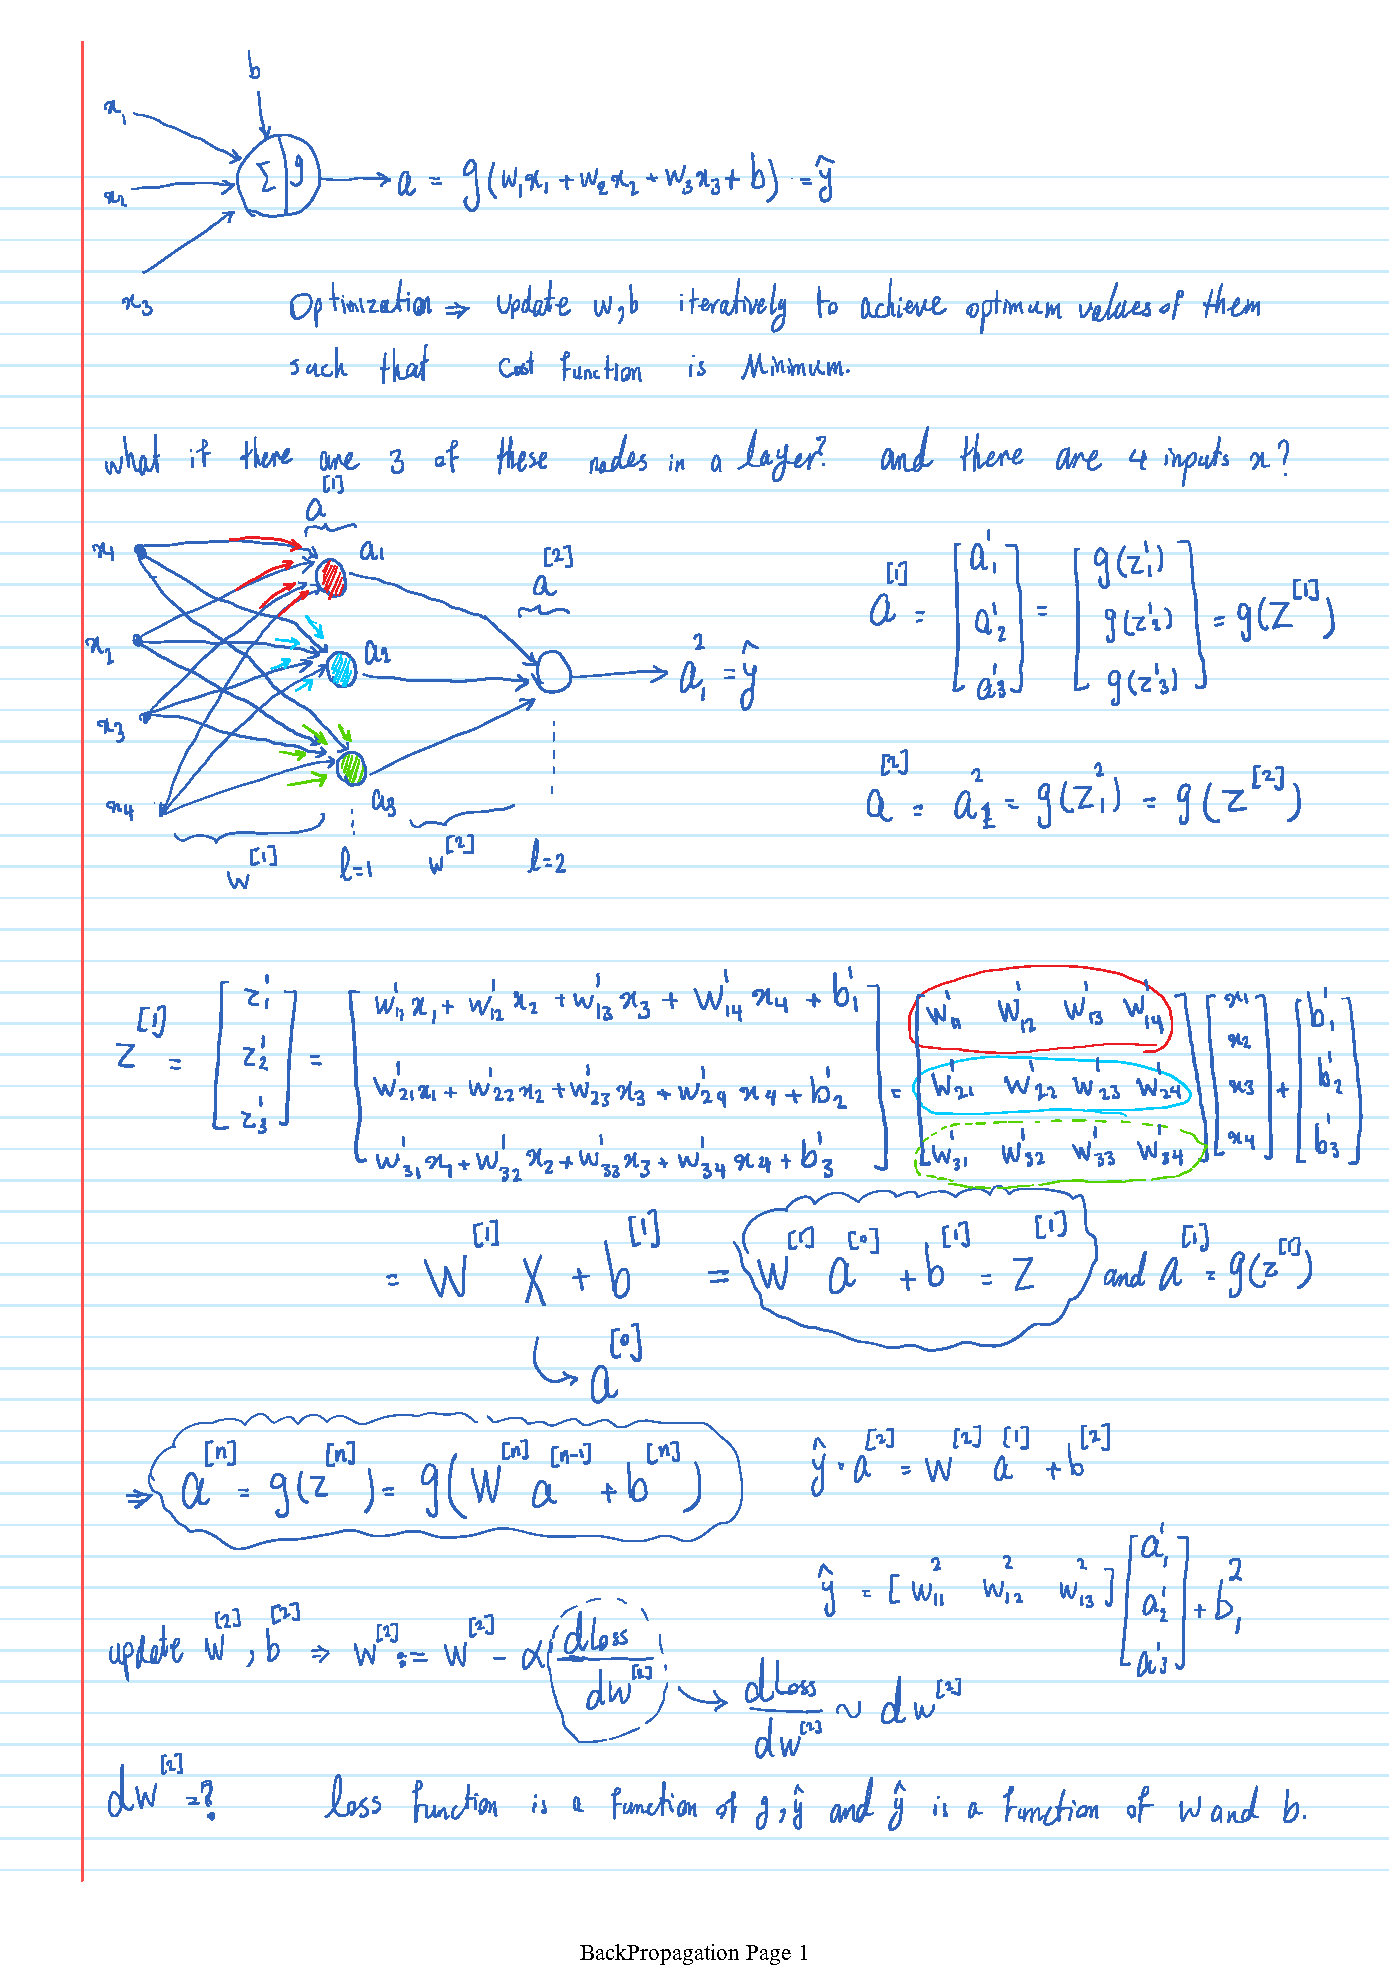 b
x₁
x₂
x₃
Σ | g
a = g(w₁x₁ + w₂x₂ + w₃x₃ + b) = ŷ
Optimization ⇒ update w,b iteratively to achieve optimum values of them
such that cost function is Minimum.
what if there are 3 of these nodes in a layer? and there are 4 inputs x?
a^[1]
x₁
a₁
a^[2]
x₂
a₂
a₁² = ŷ
x₃
x₄
a₃
w^[1]
l=1
w^[2]
l=2
a^[1] = [a₁¹ a₂¹ a₃¹] = [g(z₁¹) g(z₂¹) g(z₃¹)] = g(Z^[1])
a^[2] = a₁² = g(z₁²) = g(z^[2])
z^[1] = [z₁¹ z₂¹ z₃¹] =
[w₁₁¹x₁ + w₁₂¹x₂ + w₁₃¹x₃ + w₁₄¹x₄ + b₁¹
w₂₁¹x₁ + w₂₂¹x₂ + w₂₃¹x₃ + w₂₄¹x₄ + b₂¹
w₃₁¹x₁ + w₃₂¹x₂ + w₃₃¹x₃ + w₃₄¹x₄ + b₃¹]
= [w₁₁¹ w₁₂¹ w₁₃¹ w₁₄¹
w₂₁¹ w₂₂¹ w₂₃¹ w₂₄¹
w₃₁¹ w₃₂¹ w₃₃¹ w₃₄¹] [x₁ x₂ x₃ x₄] + [b₁¹ b₂¹ b₃¹]
= W^[1] X + b^[1] = W^[1] a^[0] + b^[1] = Z^[1] and a^[1] = g(z^[1])
→ a^[0]
⇒ a^[n] = g(z^[n]) = g(W^[n] a^[n-1] + b^[n])
ŷ = a^[2] = W^[2] a^[1] + b^[2]
ŷ = [w₁₁² w₁₂² w₁₃²] [a₁¹ a₂¹ a₃¹] + b₁²
update w^[2], b^[2] ⇒ w^[2] := w^[2] - α dLoss/dw^[2] → dLoss/dw^[2] ~ dw^[2]
dw^[2] = ? loss function is a function of y, ŷ and ŷ is a function of w and b.
BackPropagation Page 1